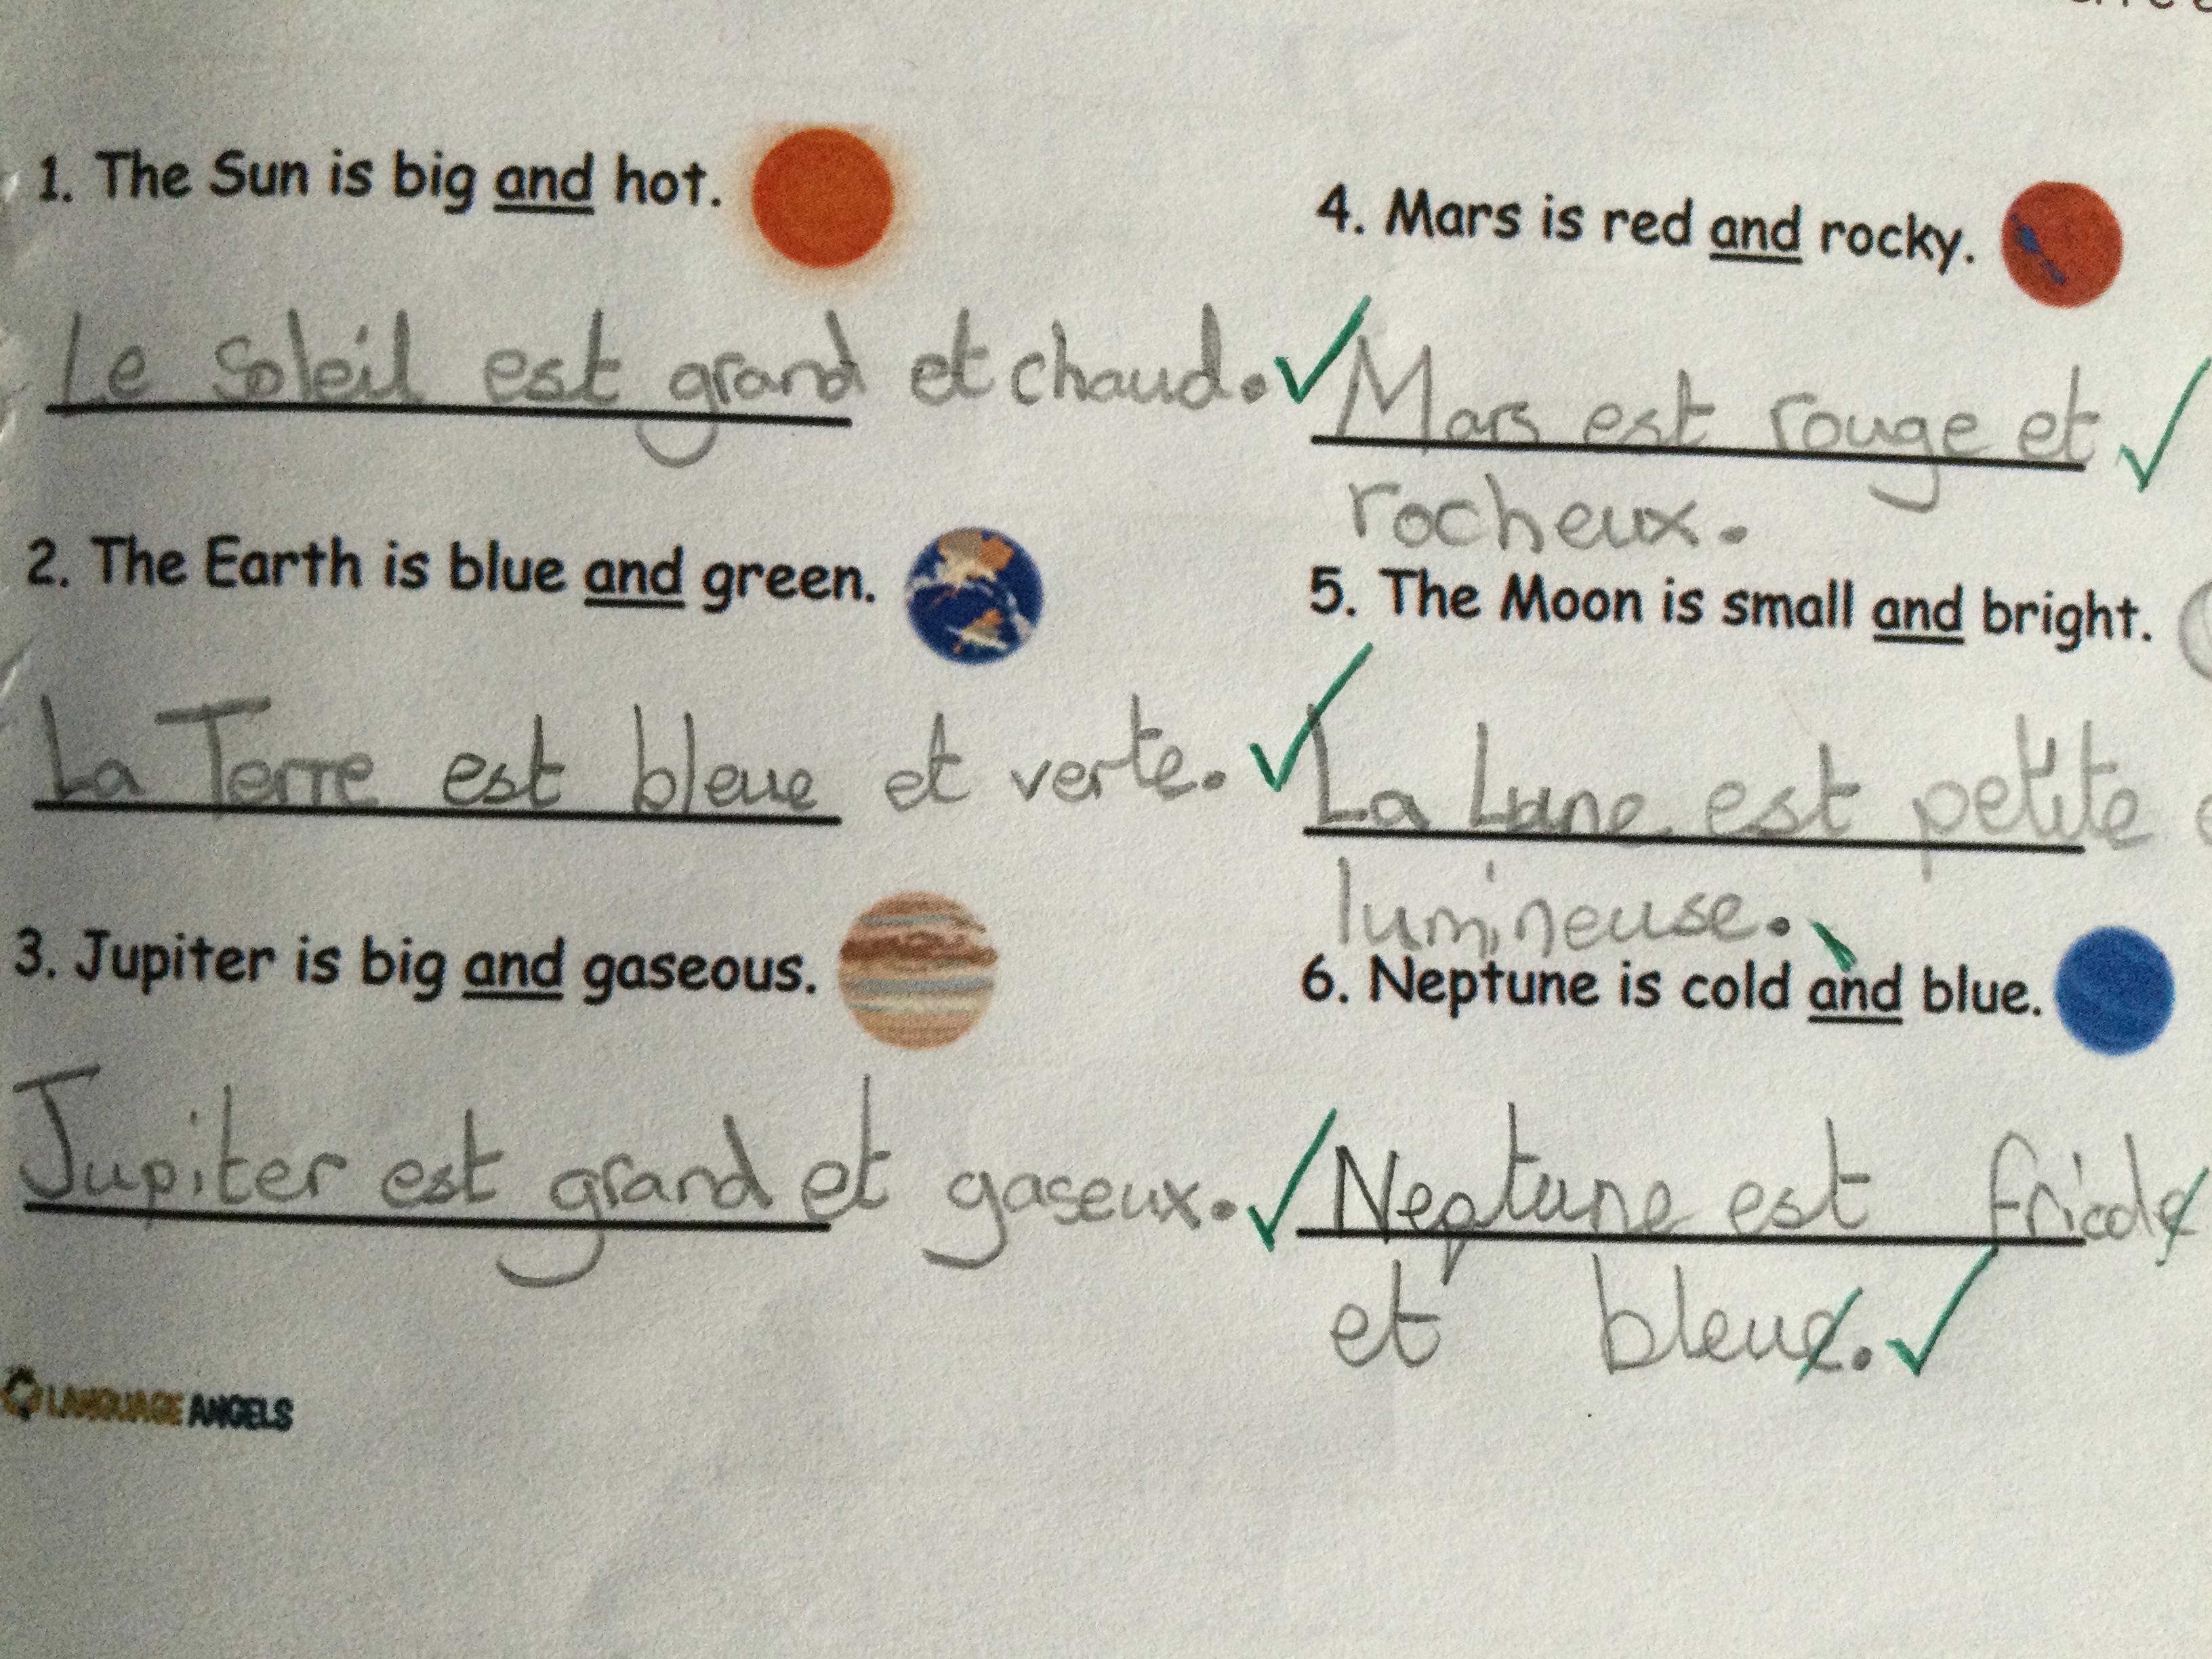 1. The Sun is big and hot.
Le Soleil est grand et chaud.
2. The Earth is blue and green.
La Terre est bleue et verte.
3. Jupiter is big and gaseous.
Jupiter est grand et gaseux.
LANGUAGE ANGELS
4. Mars is red and rocky.
Mars est rouge et
rocheux.
5. The Moon is small and bright.
La Lune est petite
lumineuse.
6. Neptune is cold and blue.
Neptune est
et bleue.